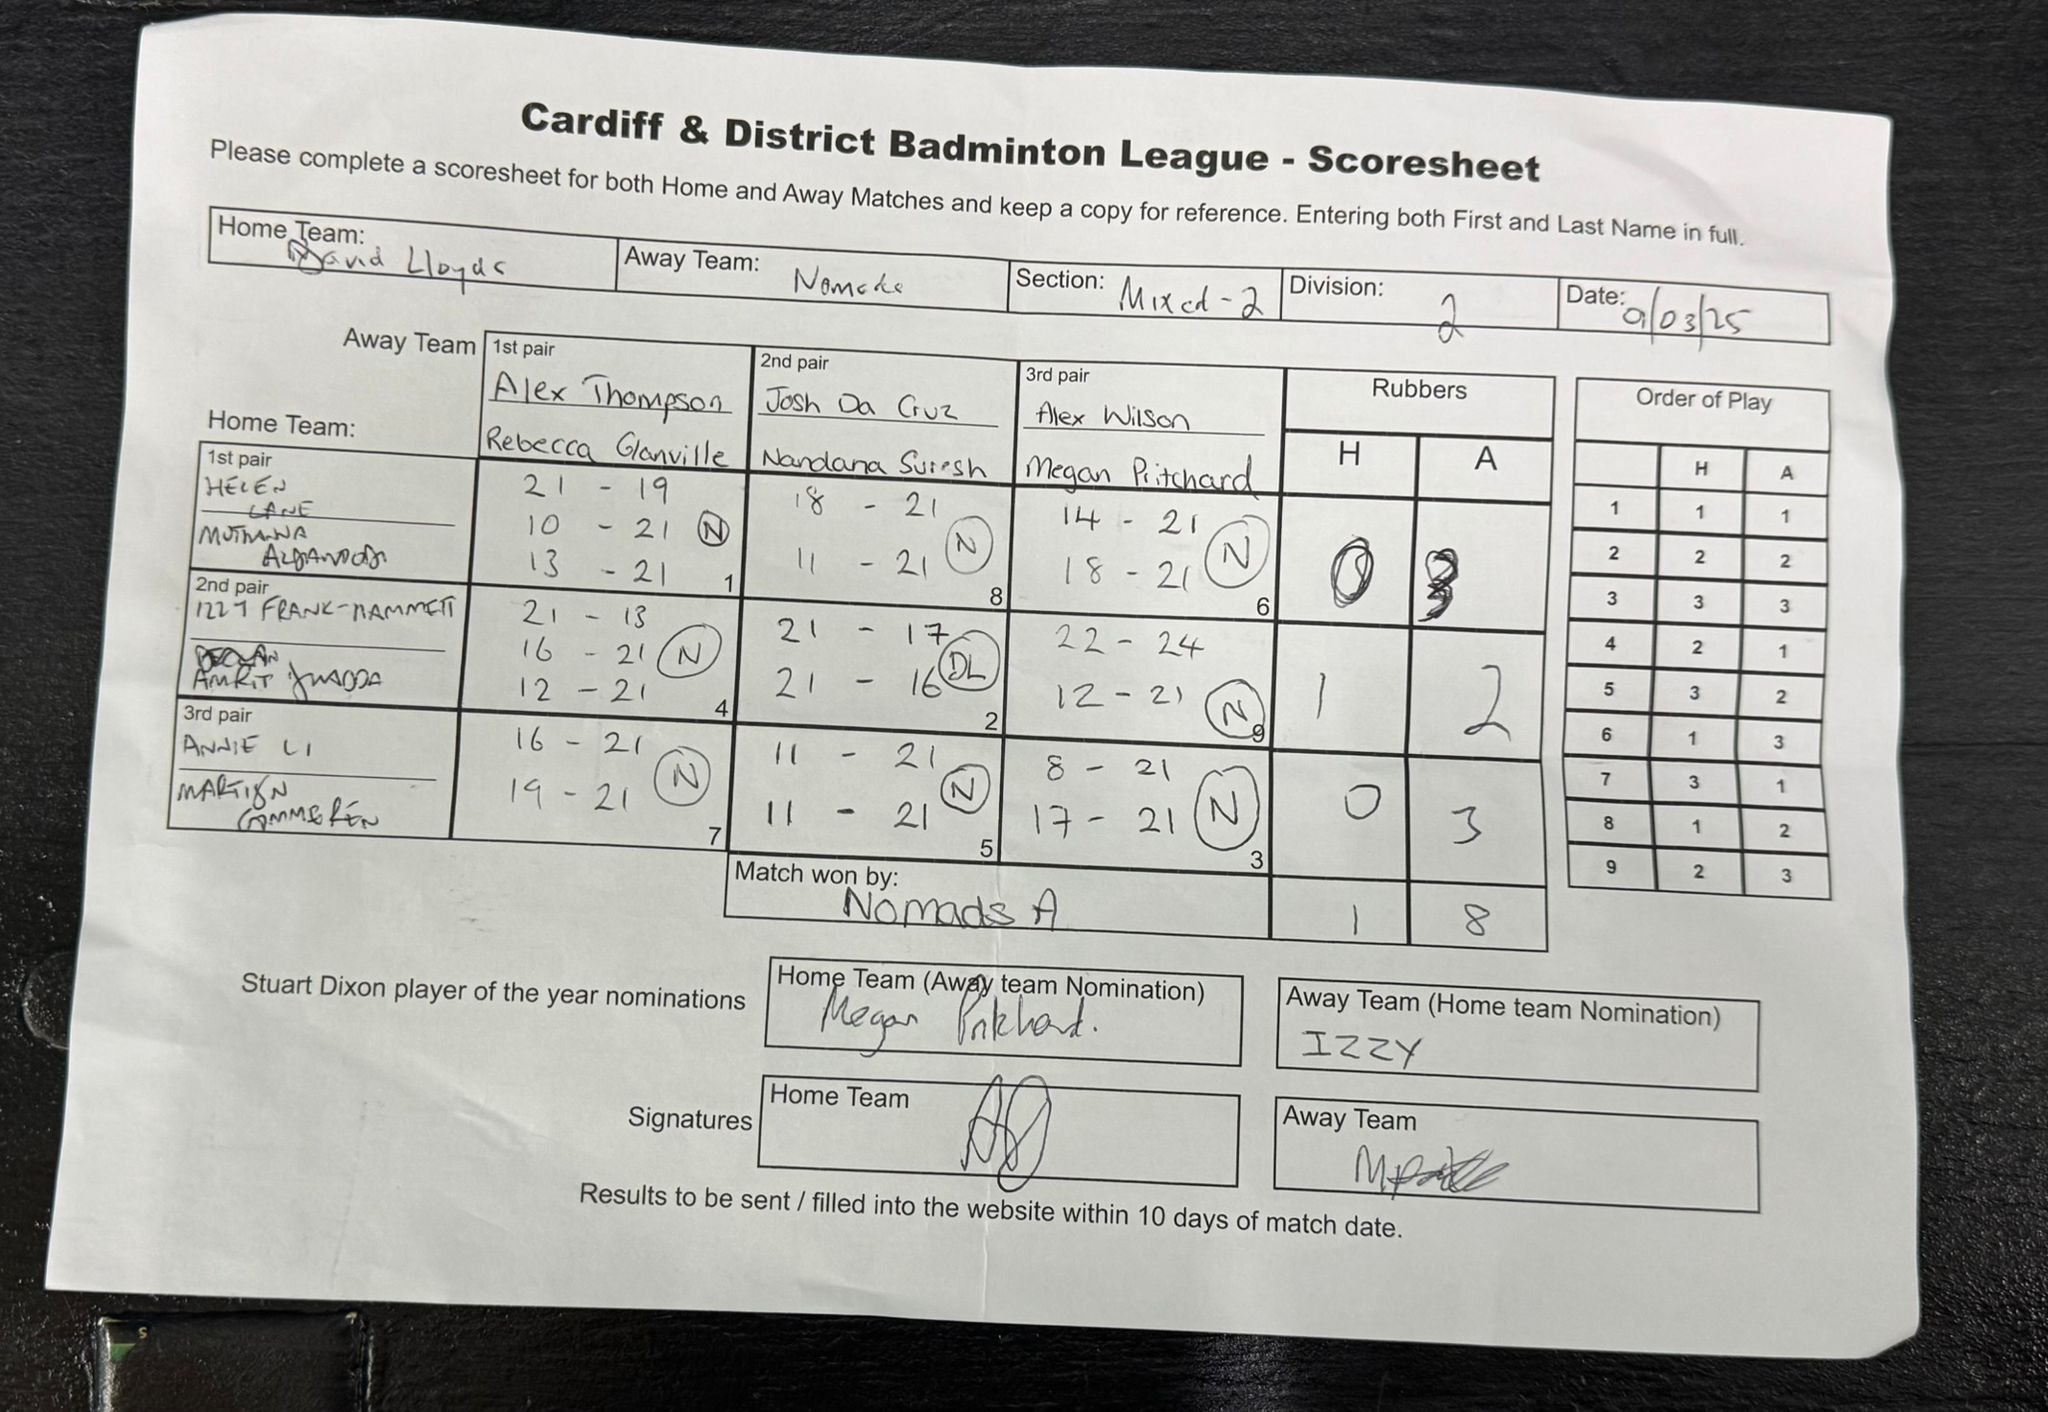 Cardiff & District Badminton League - Scoresheet
Please complete a scoresheet for both Home and Away Matches and keep a copy for reference. Entering both First and Last Name in full.
Home Team: David Lloyds
Away Team: Nomads
Section: Mixed-2
Division: 2
Date: 9/03/25
Away Team
1st pair
Alex Thompson
Rebecca Glanville
2nd pair
Josh Da Cruz
Nandana Suresh
3rd pair
Alex Wilson
Megan Pritchard
Rubbers
H A
Home Team:
1st pair
HELEN
LANE
MUTHANNA
21 - 19
10 - 21 N
13 - 21
1
18 - 21
11 - 21 N
8
14 - 21
18 - 21 N
6
0 3
2nd pair
IZZY FRANK-MAMMETT
AMRIT
21 - 13
16 - 21 N
12 - 21
4
21 - 17
21 - 16 DL
2
22 - 24
12 - 21 N
9
1 2
3rd pair
ANNIE LI
MARTIJN
16 - 21
19 - 21 N
7
11 - 21
11 - 21 N
5
8 - 21
17 - 21 N
3
0 3
Match won by:
Nomads A
1 8
Order of Play
H A
1 1 1
2 2 2
3 3 3
4 2 1
5 3 2
6 1 3
7 3 1
8 1 2
9 2 3
Stuart Dixon player of the year nominations
Home Team (Away team Nomination)
Megan Pritchard.
Away Team (Home team Nomination)
IZZY
Signatures
Home Team
Away Team
Results to be sent / filled into the website within 10 days of match date.